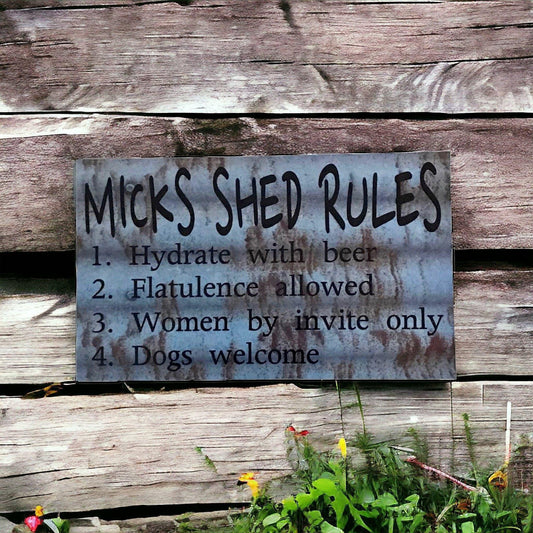 MICKS SHED RULES
1. Hydrate with beer
2. Flatulence allowed
3. Women by invite only
4. Dogs welcome